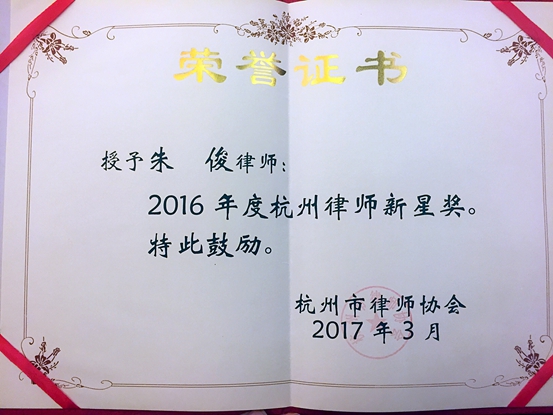 荣誉证书
授予朱 俊律师:
2016 年度杭州律师新星奖。
特此鼓励。
杭州市律师协会
2017 年 3 月